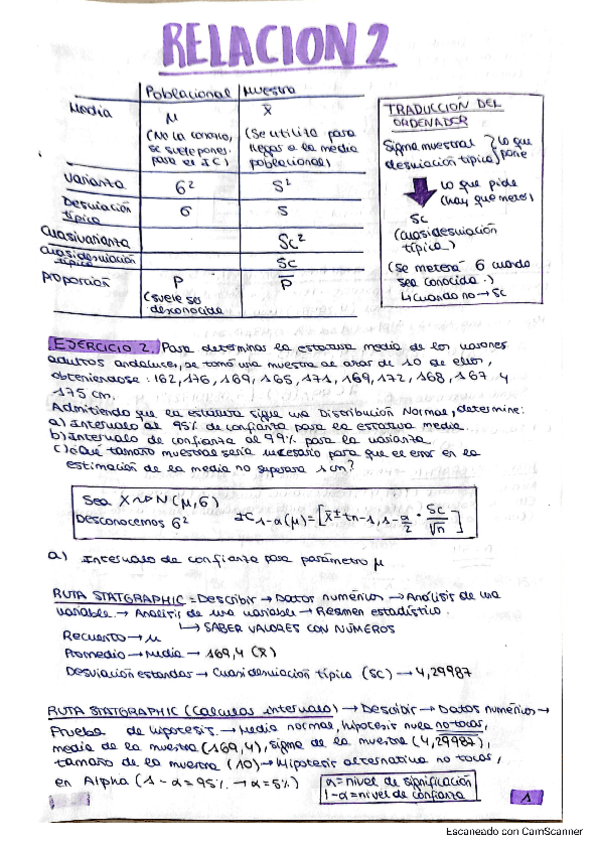 RELACION 2
Poblacional Muestra
Media μ x̄
(No la conozco, se suele poner para el IC) (Se utiliza para llegar a la media poblacional)
Varianza σ² S²
Desviación típica σ S
Cuasivarianza Sc²
Cuasidesviación típica Sc
Proporción P P̄
(suele ser desconocida
TRADUCCIÓN DEL
ORDENADOR
Sigma muestral
desviación típica } lo que pone
lo que pide
(hay que meter)
Sc
(cuasidesviación
típica)
(Se meterá σ cuando
sea conocida.)
↳ Cuando no → Sc
EJERCICIO 2. Para determinar la estatura media de los varones
adultos andaluces, se tomó una muestra al azar de 10 de ellos,
obteniendose: 162, 176, 169, 165, 171, 169, 172, 168, 167 y
175 cm.
Admitiendo que la estatura sigue una Distribución Normal, determine:
a) Intervalo al 95% de confianza para la estatura media
b) Intervalo de confianza al 99% para la varianza
c) ¿Qué tamaño muestral sería necesario para que el error en la
estimación de la media no superara 1 cm?
Sea X ~> N(μ, σ)
Desconocemos σ² IC 1-α(μ) = [x̄ ± tn-1, 1-α/2 · Sc/√n]
a) Intervalo de confianza para parámetro μ
RUTA STATGRAPHIC = Describir → Datos numéricos → Análisis de una
variable → Analisis de una variable → Resumen estadístico.
↳ SABER VALORES CON NÚMEROS
Recuento → n
Promedio → Media → 169,4 (x̄)
Desviación estandar → Cuasidesviación típica (Sc) → 4,29987
RUTA STATGRAPHIC (Calcular intervalo) → Describir → Datos numéricos →
Prueba de hipotesis → Media normal, hipotesis nula no tocar,
media de la muestra (169,4), sigma de la muestra (4,29987),
tamaño de la muestra (10) → Hipotesis alternativa no tocar,
en Alpha (1-α = 95% → α = 5%)
α = nivel de significación
1-α = nivel de confianza
1
Escaneado con CamScanner